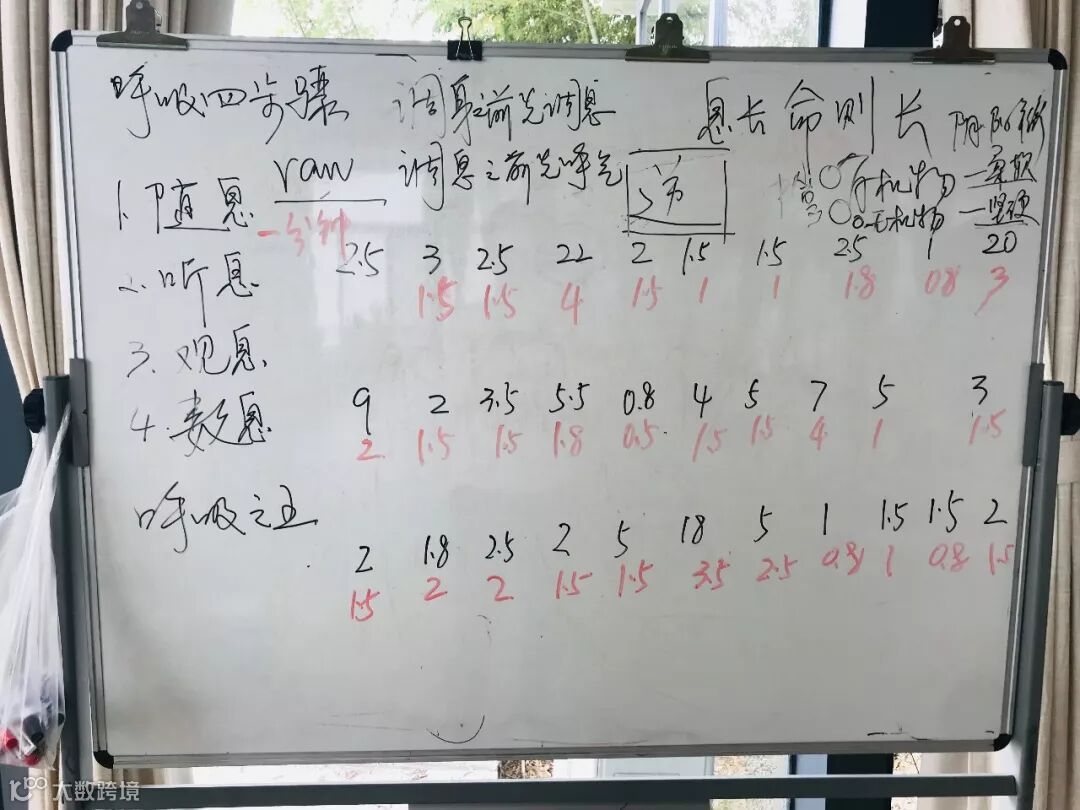 呼吸四步骤 调身之前先调息 息长命则长 阴阳
1. 随息 ran 调息之前先呼气 有机物 一柔软
一分钟 无机物 一坚硬
2.5 3 2.5 22 2 1.5 1.5 2.5 1 20
2. 听息 1.5 1.5 4 1.5 1 1 1.8 0.8 3
3. 观息
9 2 3.5 5.5 0.8 4 5 7 5 3
4. 数息 2 1.5 1.5 1.8 0.5 1.5 1.5 4 1 1.5
呼吸之王
2 1.8 2.5 2 5 18 5 1 1.5 1.5 2
1.5 2 2 1.5 1.5 3.5 2.5 0.8 1 0.8 1.5
大数跨境